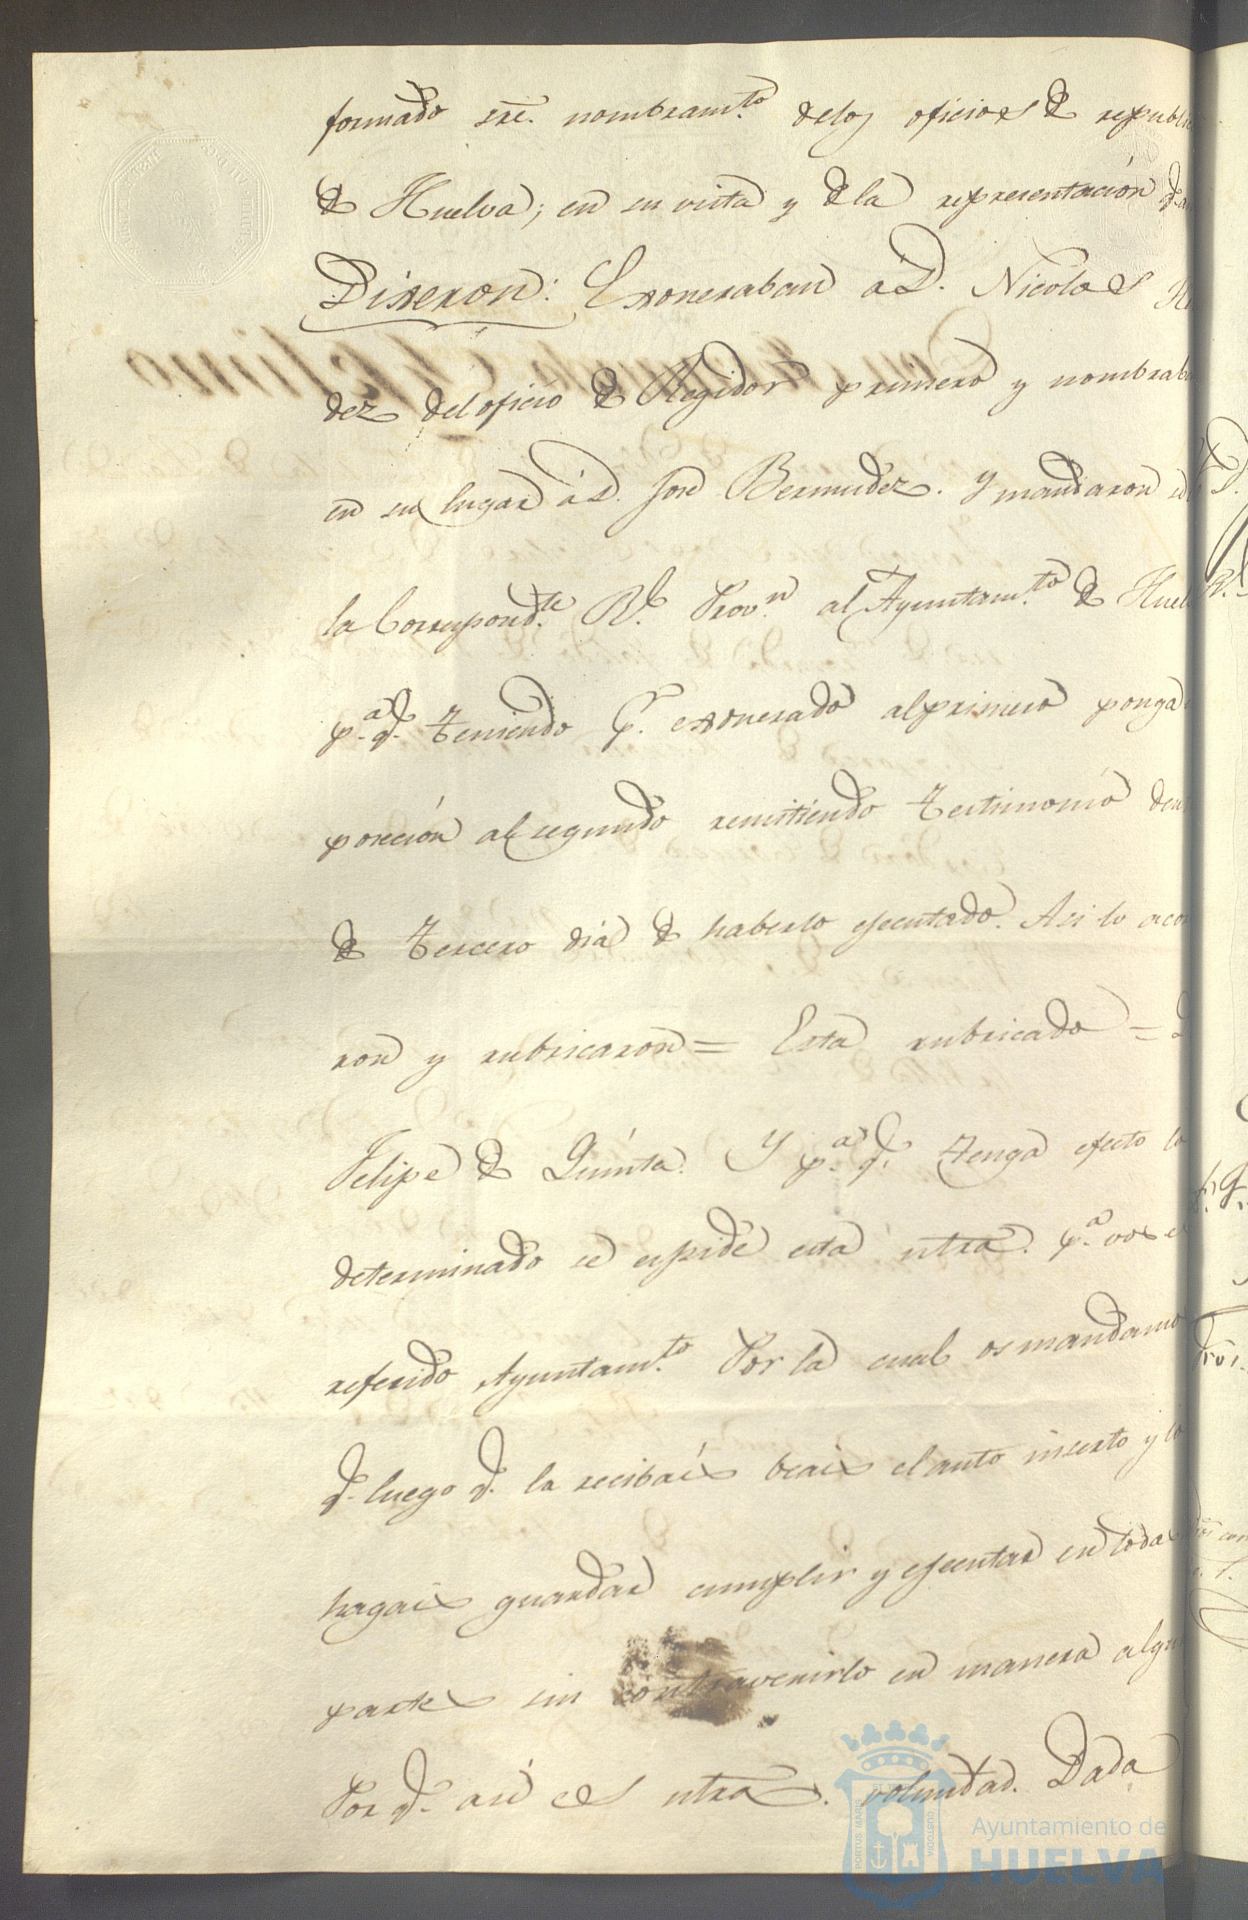 formado sre. nombram.to delos oficios de republi
de Huelva; en su vista y de la representación q.
Dixeron: Exoneraban a D. Nicolas
dez del oficio de Regidor primero y nombrab
en su lugar á D. José Bermudez. Y mandaron
la Correspond.te R.l Prov.n al Ayuntam.to de Huel
p.a q.e teniendo p.r exonerado al primero ponga
posección al segundo remitiendo testimonio den
de tercero dia de haberlo ejecutado. Asi lo aco
ron y rubricaron = Esta rubricado =
Felipe de Quinta. Y p.a q.e tenga efecto lo
determinado se expide esta ntra. p.a vos el
referido Ayuntam.to Por la cual os mandamo
q.e luego q.e la recibais beais el auto inserto y lo
hagais guardar cumplir y ejecutar en todas
partes sin contravenirlo en manera algu
Por q.e asi es ntra. voluntad. Dada
PORTUS MARIS
CUSTODIA
Ayuntamiento de
HUELVA